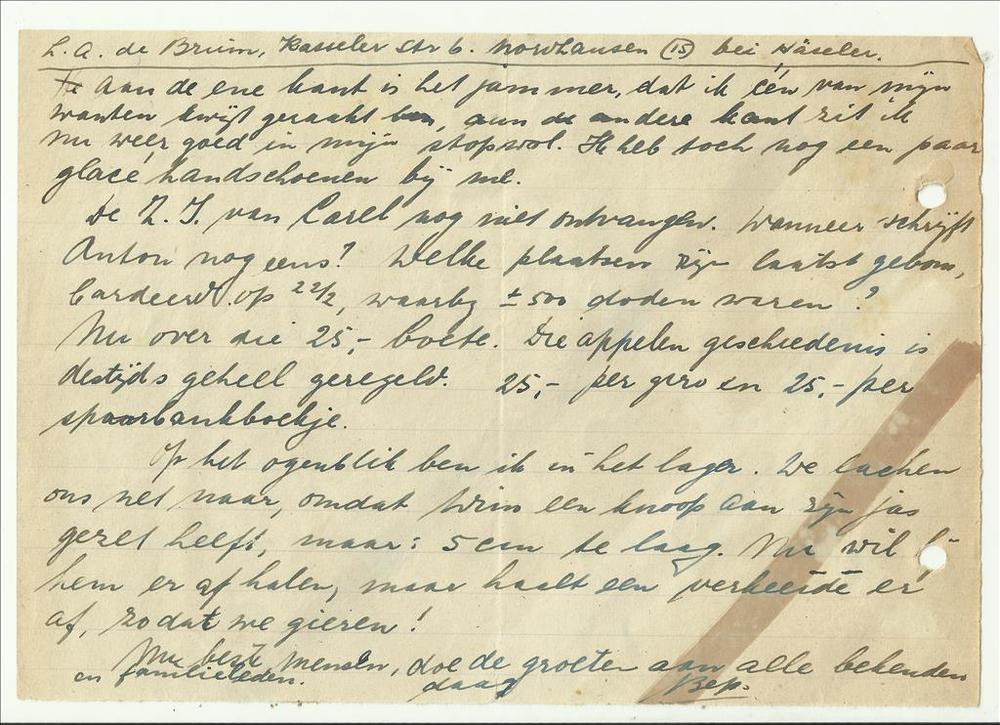 L. A. de Bruin, Kasseler Str 6. Nordhausen (15) bei Häseler.
Aan de ene kant is het jammer, dat ik één van mijn
wanten kwijt geraakt ben, aan de andere kant zit ik
nu weer goed in mijn stopwol. Ik heb toch nog een paar
glacé handschoenen bij me.
De Z. I. van Carel nog niet ontvangen. Wanneer schrijft
Anton nog eens? Welke plaatsen zijn laatst gebom,
bardeerd op 22/2, waarbij ± 500 doden waren?
Nu over die 25,- boete. Die appelen geschiedenis is
destijds geheel geregeld. 25,- per giro en 25,- per
spaarbankboekje.
Op het ogenblik ben ik in het lager. We lachen
ons net naar, omdat Wim een knoop aan zijn jas
gezet heeft, maar: 5 cm te laag. Nu wil
hem er af halen, maar haalt een verkeerde er
af, zodat we gieren!
Nu beste mensen, doe de groeten aan alle bekenden
en familieleden. daag Bep.